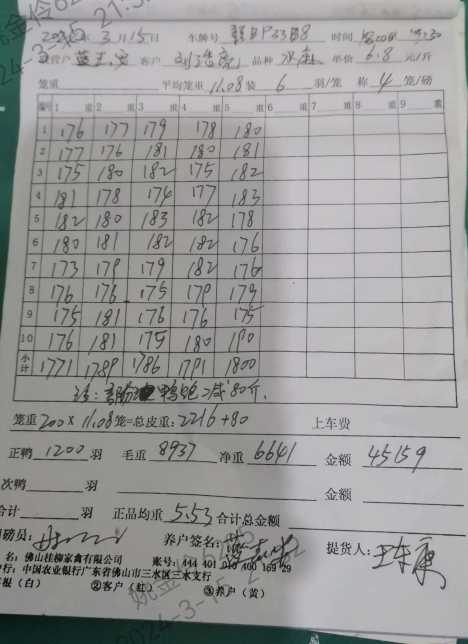 3月15日 车牌号 时间
客户 品种 单价 6.8 元/斤
笼重 平均笼重 11.08 装 6 羽/笼 称 4 笼/磅
编号 1 重 2 重 3 重 4 重 5 重 6 重 7 重 8 重 9 重
1 176 177 179 178 180
2 177 176 181 180 181
3 175 180 182 175 182
4 181 178 174 177 183
5 182 180 183 182 178
6 180 181 182 182 176
7 173 179 179 182 176
8 176 176 175 179 179
9 175 181 176 176 175
10 176 181 175 180 190
小计 1771 1789 1786 1791 1800
注: 鸭 减80斤.
笼重 200 × 11.08 笼=总皮重: 2216+80 上车费
正鸭 1200 羽 毛重 8937 净重 6641 金额 45159
次鸭 羽 金额
合计 羽 正品均重 5.53 合计总金额
磅员: 养户签名: 提货人:
名: 佛山桂柳家禽有限公司 账号: 444 401 010 400 169 29
行: 中国农业银行广东省佛山市三水区三水支行
根(白) ②客户(红) ③养户(黄)